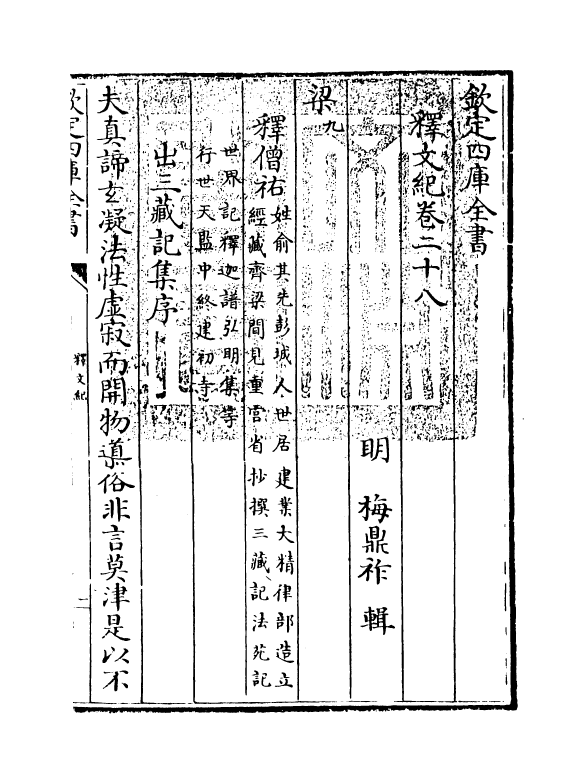 欽定四庫全書
釋文紀卷二十八
明　梅鼎祚　輯
梁九
釋僧祐
姓俞其先彭城人世居建業大精律部造立
經藏齊梁間見重宫省抄撰三藏記法苑記
世界記釋迦譜弘明集等
行世天監中終建初寺
出三藏記集序
夫真諦玄凝法性虚寂而開物導俗非言莫津是以不
欽定四庫全書
釋文紀